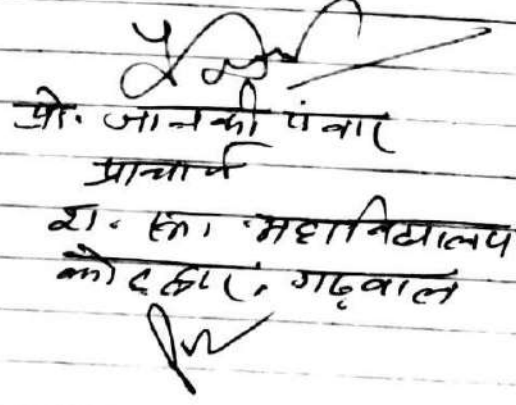 प्रो. जानकी पंवार
प्राचार्य
रा. स्ना. महाविद्यालय
कोटद्वार, गढ़वाल